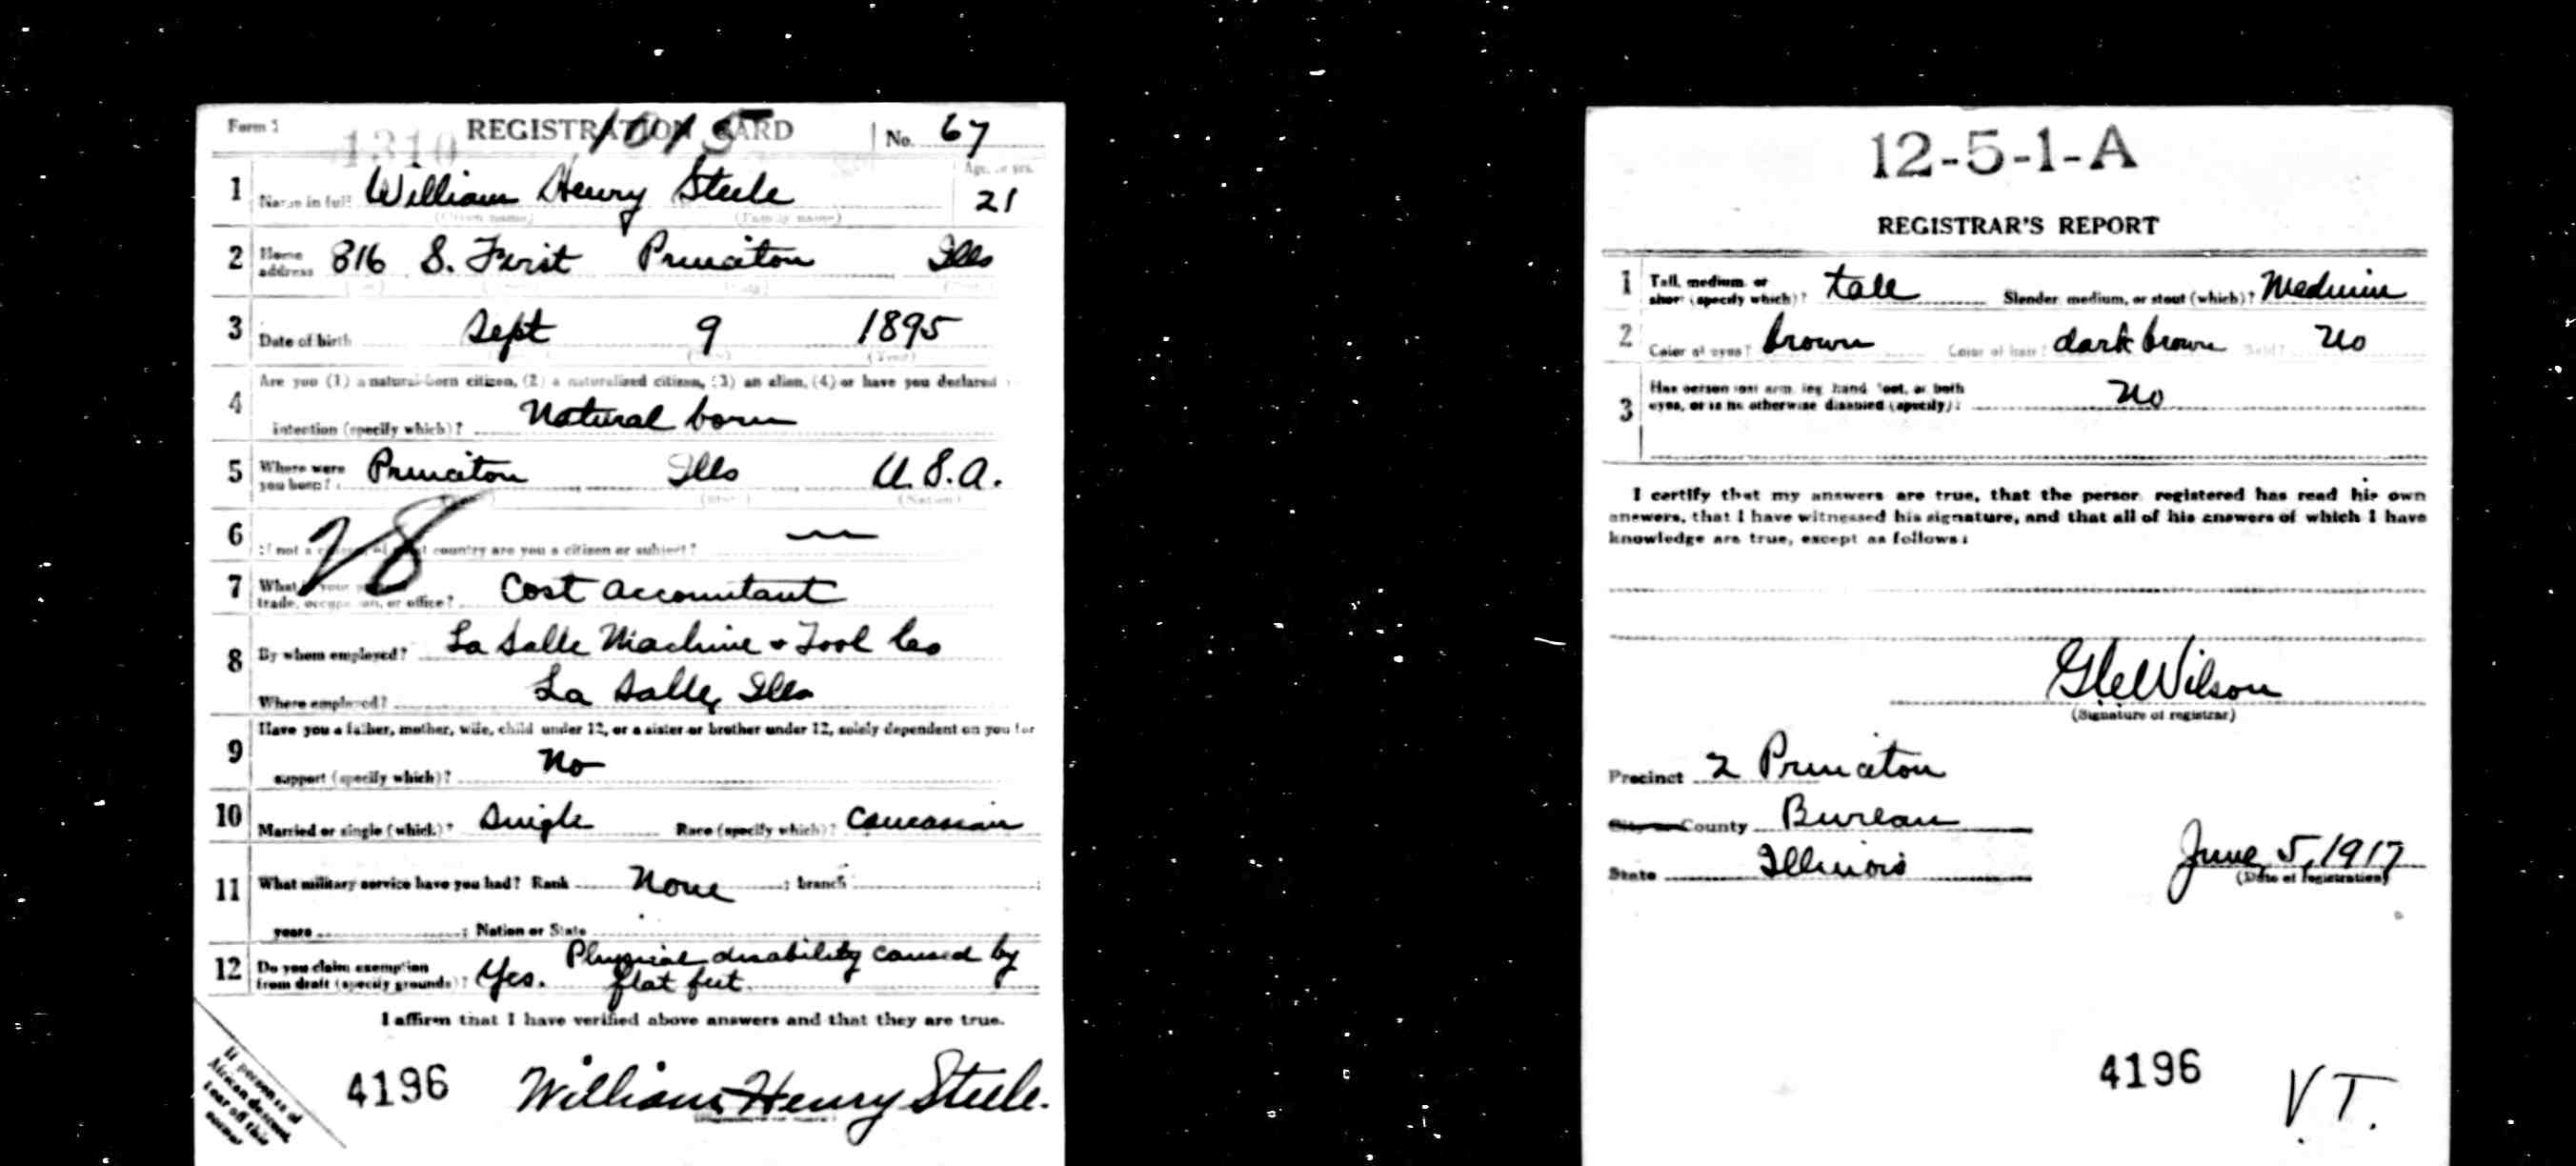 Form 1 REGISTRATION CARD No. 67
1310 1015
1 Name in full William Henry Steele Age, in yrs. 21
(Given name) (Family name)
2 Home address 816 S. First Princeton Ills
3 Date of birth Sept 9 1895
(Year)
4 Are you (1) a natural-born citizen, (2) a naturalized citizen, (3) an alien, (4) or have you declared
intention (specify which)? Natural born
5 Where were you born? Princeton Ills U.S.A.
(State) (Nation)
6 If not a citizen, of what country are you a citizen or subject? —
28
7 What is your trade, occupation, or office? Cost accountant
8 By whom employed? La Salle Machine & Tool Co
Where employed? La Salle, Ills
9 Have you a father, mother, wife, child under 12, or a sister or brother under 12, solely dependent on you for
support (specify which)? No
10 Married or single (which)? Single Race (specify which)? Caucasian
11 What military service have you had? Rank None ; branch
years ; Nation or State
12 Do you claim exemption from draft (specify grounds)? Yes. Physical disability caused by
flat feet.
I affirm that I have verified above answers and that they are true.
If person is of
African descent,
tear off this
corner
4196 William Henry Steele.
12-5-1-A
REGISTRAR'S REPORT
1 Tall, medium, or short (specify which)? tall Slender, medium, or stout (which)? Medium
2 Color of eyes? brown Color of hair? dark brown Bald? No
3 Has person lost arm, leg, hand, foot, or both
eyes, or is he otherwise disabled (specify)? No
I certify that my answers are true, that the person registered has read his own
answers, that I have witnessed his signature, and that all of his answers of which I have
knowledge are true, except as follows:
Wilson
(Signature of registrar)
Precinct 2 Princeton
City or County Bureau
State Illinois June 5, 1917
(Date of registration)
4196 V T.